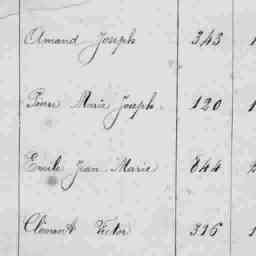 Amand Joseph 343
Pierre Marie Joseph. 120
Emile Jean Marie 844
Clément Victor 316